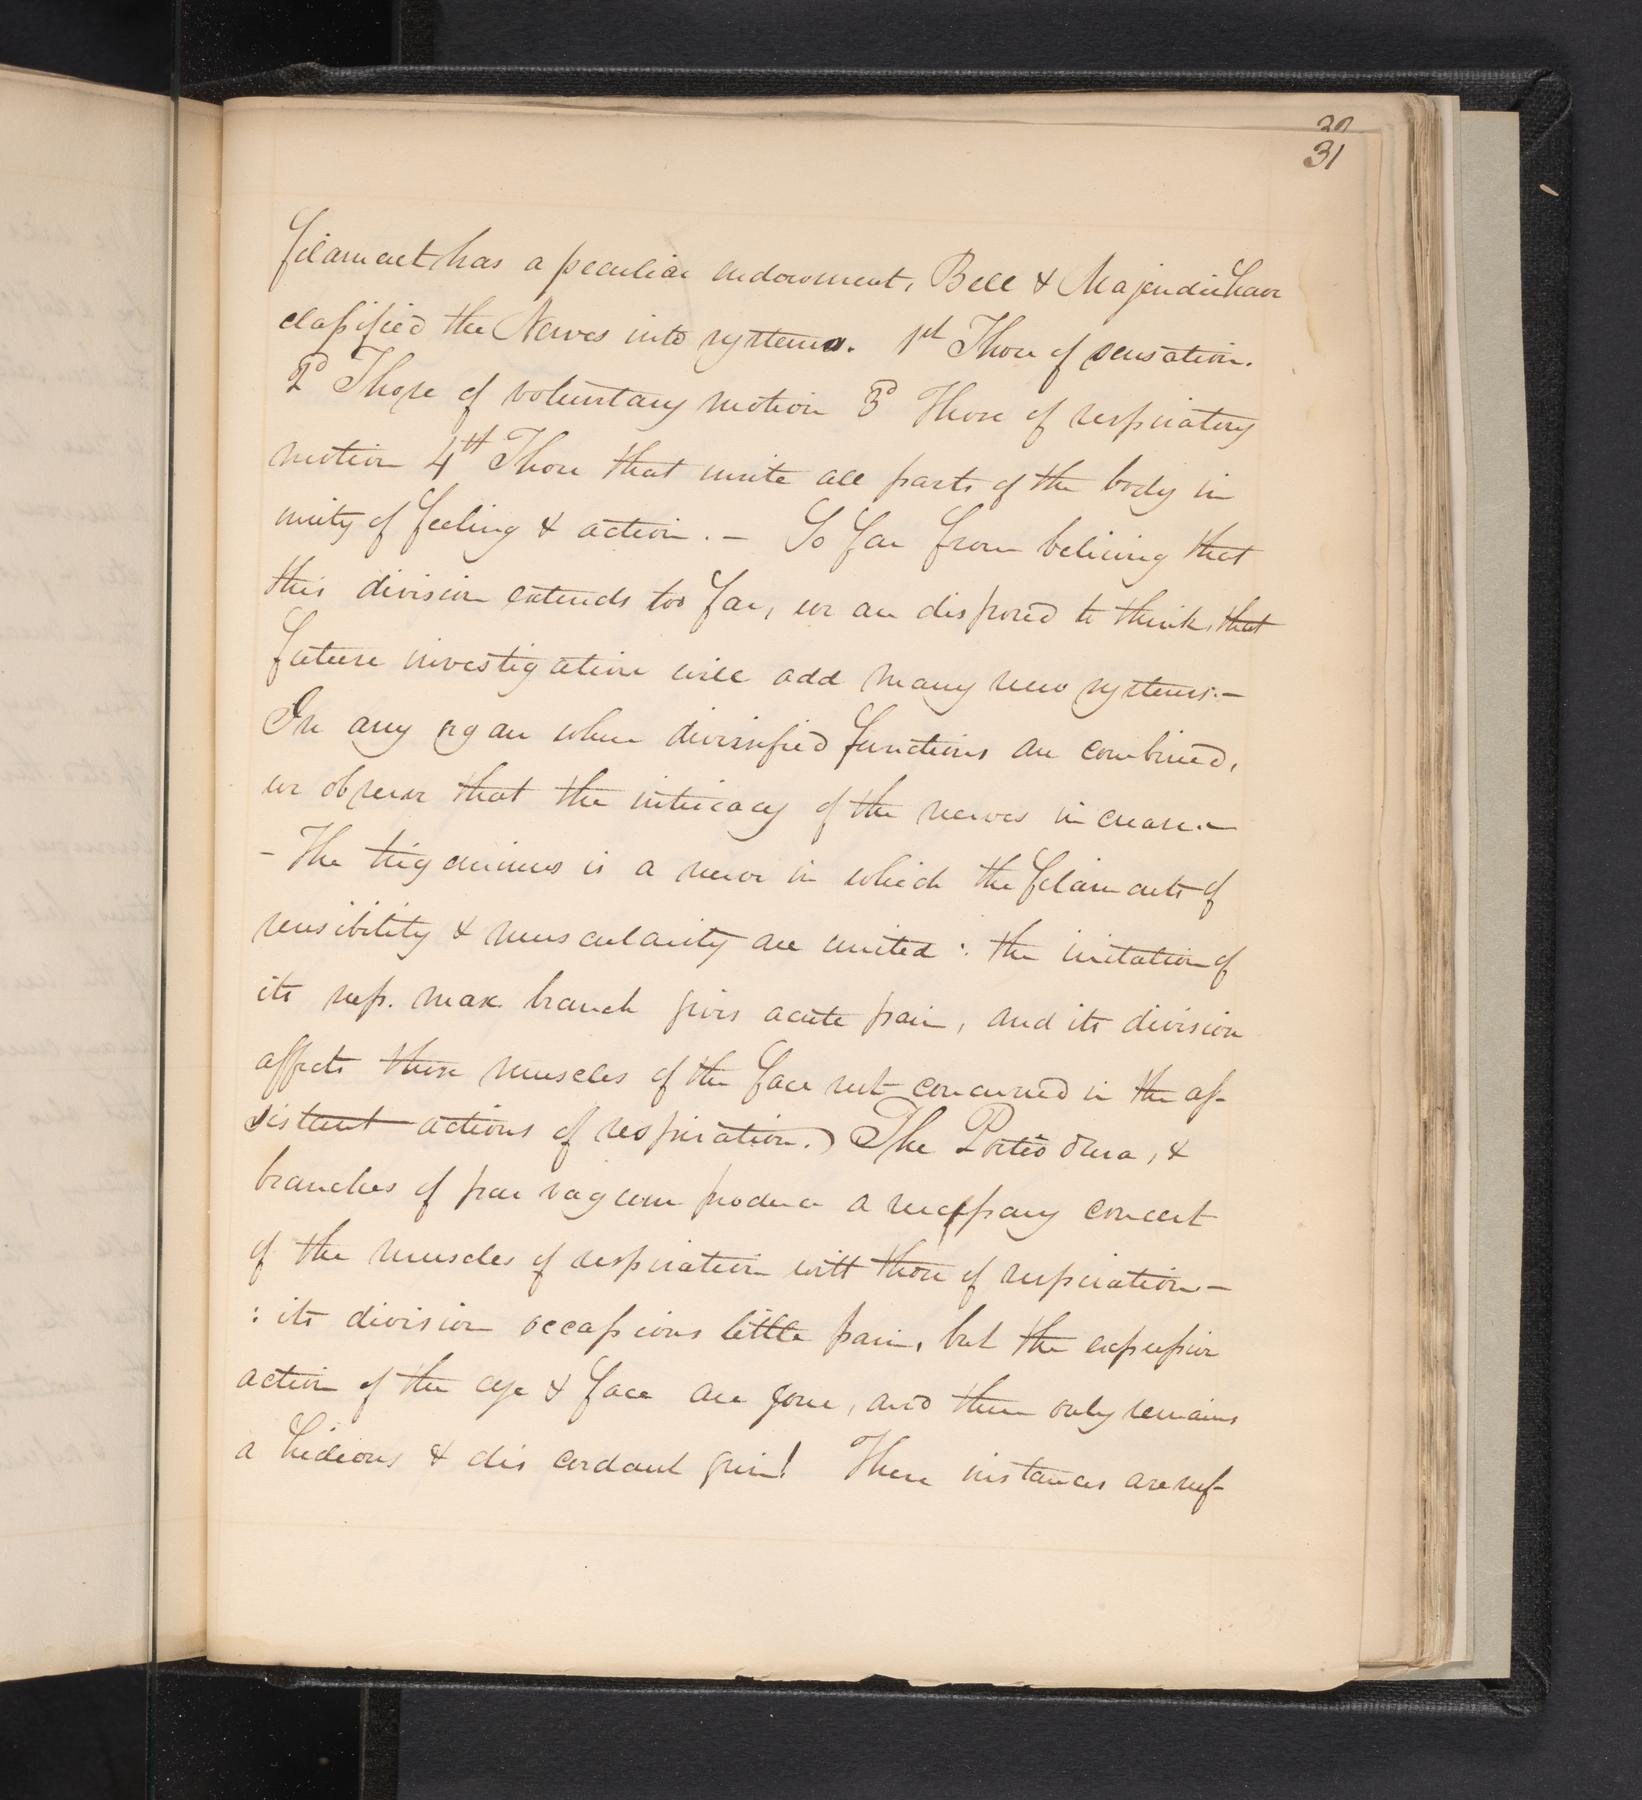 30
31
filament has a peculiar endowment, Bell & Majendie have
classified the Nerves into systems. 1st Those of sensation.
2d Those of voluntary motion 3d Those of respiratory
motion 4th Those that unite all parts of the body in
unity of feeling & action. - So far from believing that
this division extends too far, we are disposed to think, that
future investigation will add many new systems. -
In any organ where diversified functions are combined,
we observe that the intricacy of the nerves increase. -
- The trigeminus is a nerve in which the filaments of
sensibility & muscularity are united : the irritation of
its sup. max. branch gives acute pain, and its division
affects those muscles of the face not concerned in the as-
sistant actions of respiration.) The Portio dura, &
branches of par vagum produce a necessary concert
of the muscles of respiration with those of respiration -
: its division occasions little pain, but the expressive
action of the eye & face are gone, and there only remains
a hideous & discordant grin! These instances are suf-